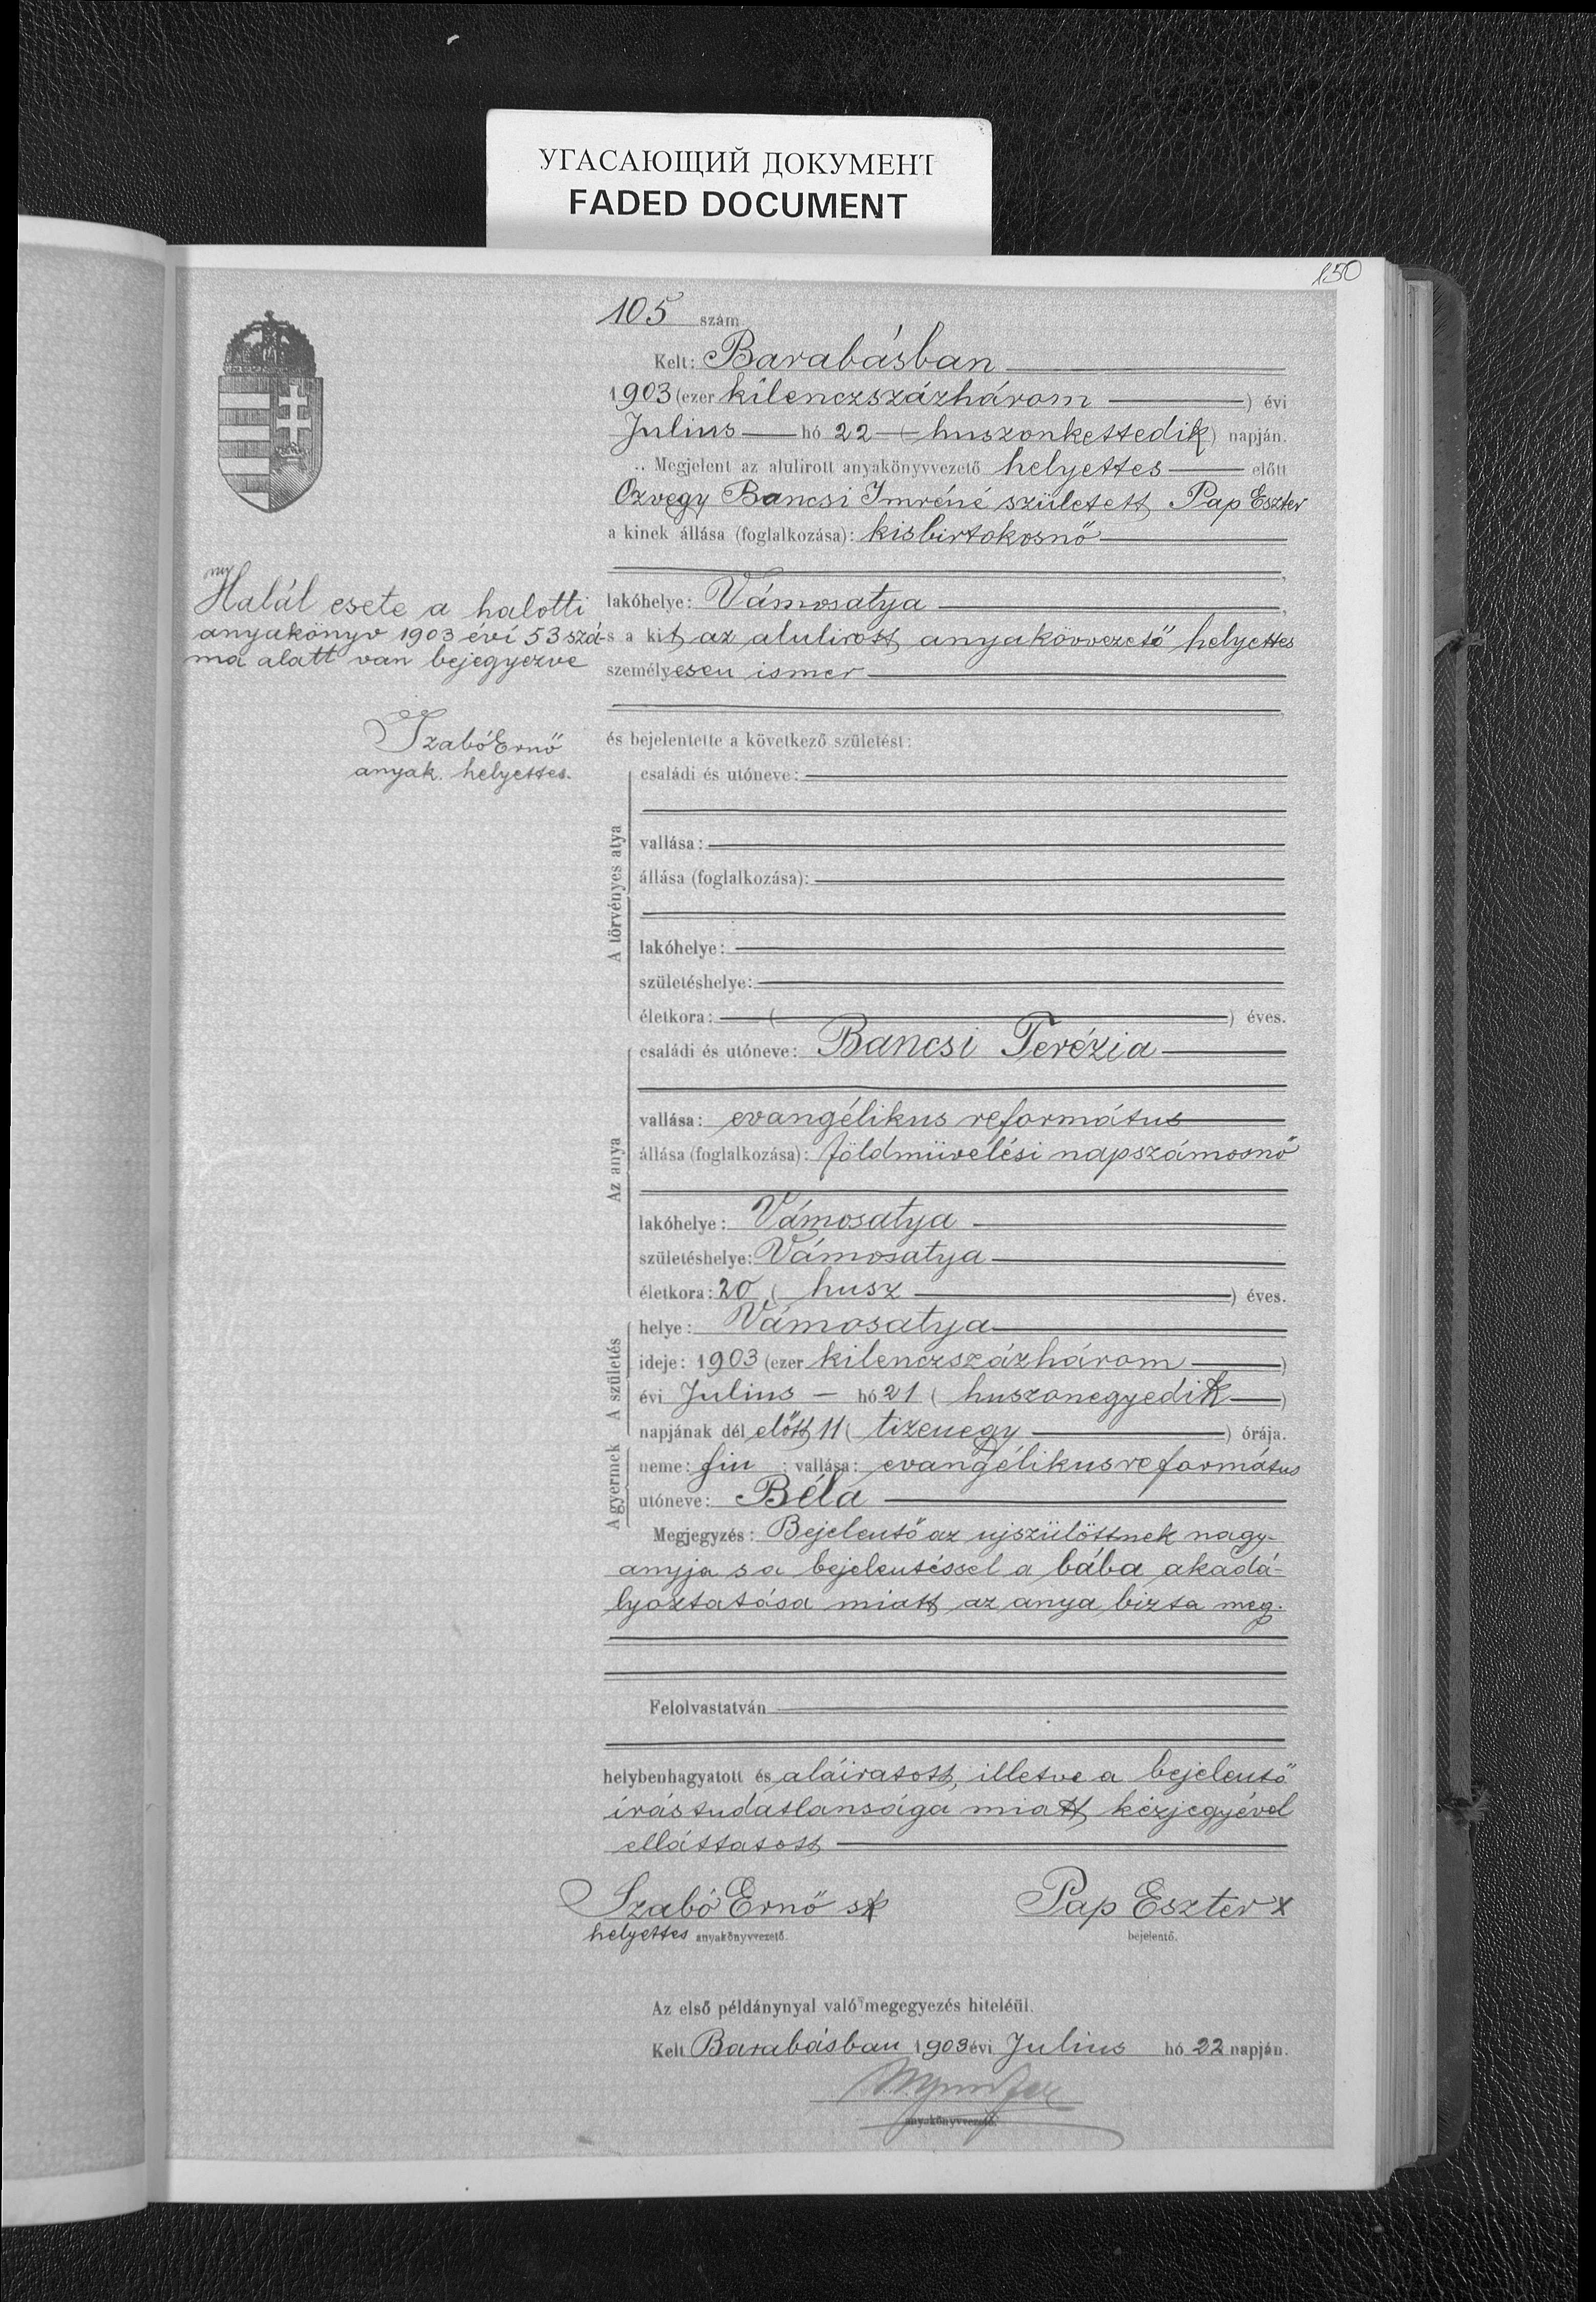 УГАСАЮЩИЙ ДОКУМЕНТ
FADED DOCUMENT
150
105 szám
Kelt: Barabásban
1903 (ezer kilenczszázhárom) évi
Julius hó 22 (huszonkettedik) napján.
Megjelent az alulirott anyakönyvvezető helyettes előtt
Özvegy Bancsi Imréné született Pap Eszter
a kinek állása (foglalkozása): kisbirtokosnő
lakóhelye: Vámosatya,
s a kit az alulirott anyakövvezető helyettes
személyesen ismer
Halál esete a halotti
anyakönyv 1903 évi 53 szá-
ma alatt van bejegyezve
Szabó Ernő
anyak. helyettes.
és bejelentette a következő születést:
A törvényes atya
családi és utóneve:
vallása:
állása (foglalkozása):
lakóhelye:
születéshelye:
életkora: ( ) éves.
Az anya
családi és utóneve: Bancsi Terézia
vallása: evangélikus református
állása (foglalkozása): földmüvelési napszámosnő
lakóhelye: Vámosatya
születéshelye: Vámosatya
életkora: 20 (husz) éves.
A születés
helye: Vámosatya
ideje: 1903 (ezer kilenczszázhárom)
évi Julius hó 21 (huszonegyedik)
napjának dél előtt 11 (tizenegy) órája.
A gyermek
neme: fiu; vallása: evangélikus református
utóneve: Béla
Megjegyzés: Bejelentő az ujszülöttnek nagy-
anyja s a bejelentéssel a bába akadá-
lyoztatása miatt az anya bizta meg.
Felolvastatván
helybenhagyatott és aláiratott, illetve a bejelentő
irástudatlansága miatt kézjegyével
elláttatott
Szabó Ernő sk
helyettes anyakönyvvezető.
Pap Eszter x
bejelentő.
Az első példánynyal való megegyezés hiteléül.
Kelt Barabásban 1903 évi Julius hó 22 napján.
anyakönyvvezető.